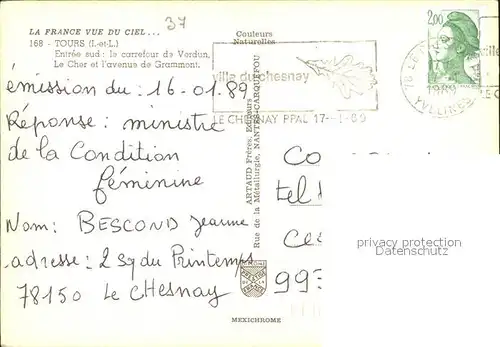 LA FRANCE VUE DU CIEL...
37
168 - TOURS (I.-et-L.)
Entrée sud : le carrefour de Verdun,
Le Cher et l'avenue de Grammont.
Couleurs
Naturelles
2,00
ville du chesnay
LE CHESNAY PPAL 17-1-89
1989
YVELINES
émission du : 16-01.89
Réponse : ministre
de la Condition
féminine
Nom : BESCOND Jeanne
adresse : 2 sq du Printemps
78150 Le Chesnay
ARTAUD Frères, Editeurs
Rue de la Métallurgie, NANTES-CARQUEFOU
Co
tel
Ce
993
privacy protection
Datenschutz
MEXICHROME